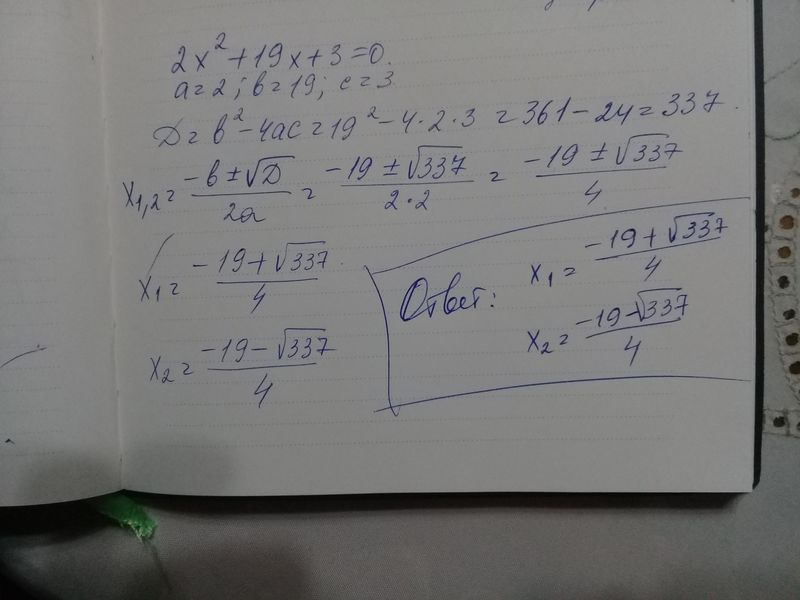 2x²+19x+3=0.
a=2; b=19; c=3
D=b²-4ac=19²-4·2·3=361-24=337.
x₁,₂=(-b±√D)/2a=(-19±√337)/2·2=(-19±√337)/4
x₁=(-19+√337)/4
x₂=(-19-√337)/4
Ответ: x₁=(-19+√337)/4
x₂=(-19-√337)/4